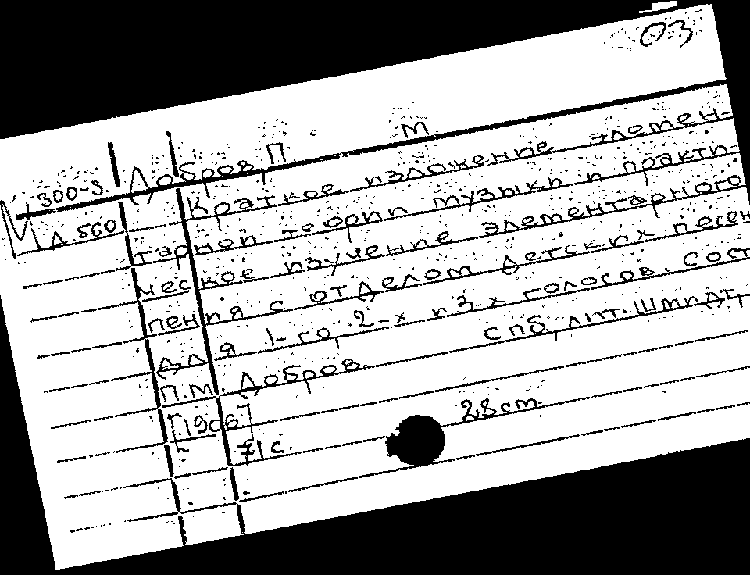 03
М 300-3 Добров, П М
Д 560 Краткое изложение элемен-
тарной теории музыки и практи-
ческое изучение элементарного
пения с отделом детских песен
для 1-го, 2-х и 3х голосов. Сост
П.М. Добров. СПб, лит. Шмидт,
[1906]
71 с. 28 cm